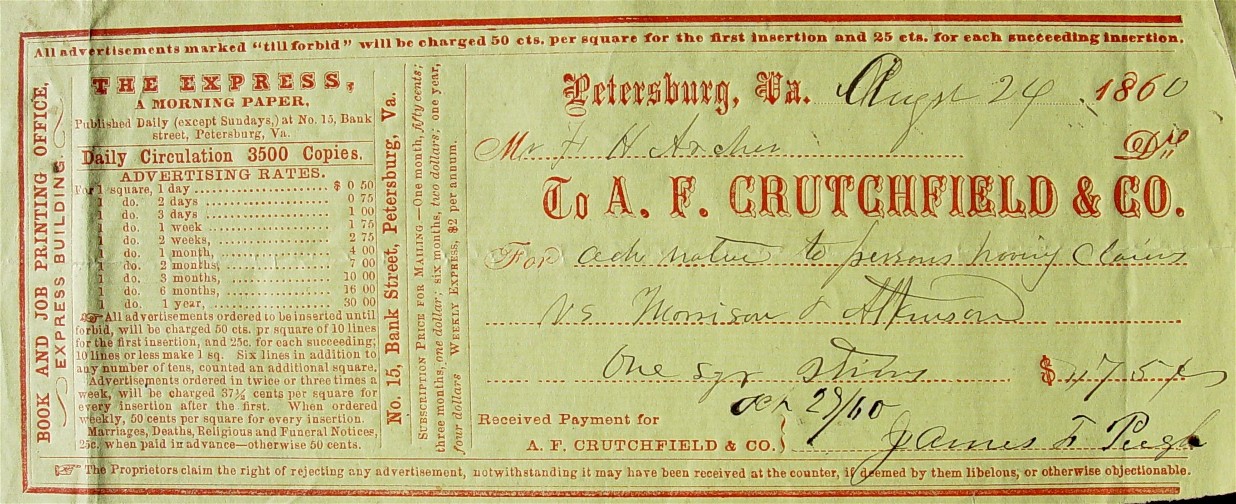 All advertisements marked "till forbid" will be charged 50 cts. per square for the first insertion and 25 cts. for each succeeding insertion.
BOOK AND JOB PRINTING OFFICE,
EXPRESS BUILDING.
THE EXPRESS,
A MORNING PAPER,
Published Daily (except Sundays,) at No. 15, Bank
street, Petersburg, Va.
Daily Circulation 3500 Copies.
ADVERTISING RATES.
For 1 square, 1 day $ 0 50
1 do. 2 days 0 75
1 do. 3 days 1 00
1 do. 1 week 1 75
1 do. 2 weeks, 2 75
1 do. 1 month, 4 00
1 do. 2 months, 7 00
1 do. 3 months, 10 00
1 do. 6 months, 16 00
1 do. 1 year, 30 00
All advertisements ordered to be inserted until
forbid, will be charged 50 cts. pr square of 10 lines
for the first insertion, and 25c. for each succeeding;
10 lines or less make 1 sq. Six lines in addition to
any number of tens, counted an additional square.
Advertisements ordered in twice or three times a
week, will be charged 37½ cents per square for
every insertion after the first. When ordered
weekly, 50 cents per square for every insertion.
Marriages, Deaths, Religious and Funeral Notices,
25c. when paid in advance—otherwise 50 cents.
No. 15, Bank Street, Petersburg, Va.
SUBSCRIPTION PRICE FOR MAILING—One month, fifty cents;
three months, one dollar; six months, two dollars; one year,
four dollars WEEKLY EXPRESS, $2 per annum.
Petersburg, Va. Augst 24 1860
Mr F H Archer Dr
To A. F. CRUTCHFIELD & CO.
For adv notice to persons having Claims
vs Morrison & Atkinson
One sqr $
Received Payment for Oct 29/60
A. F. CRUTCHFIELD & CO. James F Pugh
The Proprietors claim the right of rejecting any advertisement, notwithstanding it may have been received at the counter, if deemed by them libelous, or otherwise objectionable.